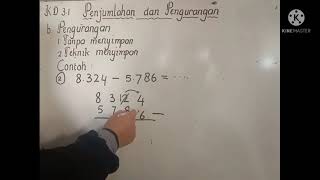 KD 3.1 Penjumlahan dan Pengurangan
b. Pengurangan
1 Tanpa menyimpan
2 Teknik menyimpan
Contoh :
② 8.324 - 5.786 = ....
8 3 12 4
5 7 8 6 -
MADE WITH
KINEMASTER